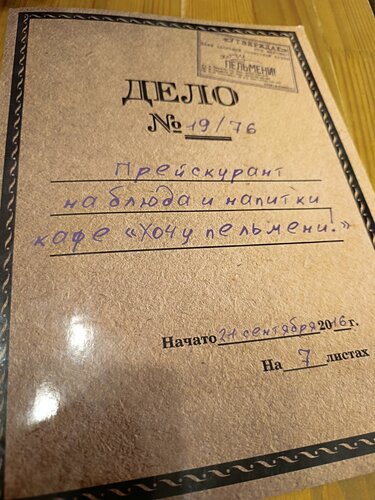 «УТВЕРЖДАЕ
ПЕЛЬМЕНИ!
ДЕЛО
№ 19/76
Прейскурант
на блюда и напитки
кафе «Хочу пельмени!»
Начато 21 сентября 2016 г.
На 7 листах